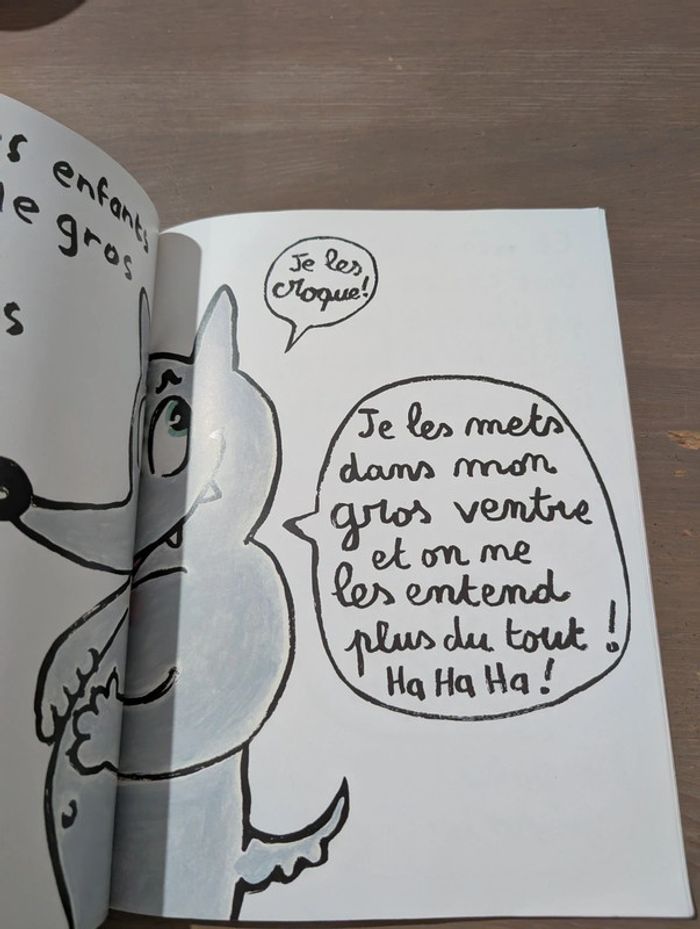 enfants
gros
Je les
croque!
Je les mets
dans mon
gros ventre
et on ne
les entend
plus du tout !
Ha Ha Ha !